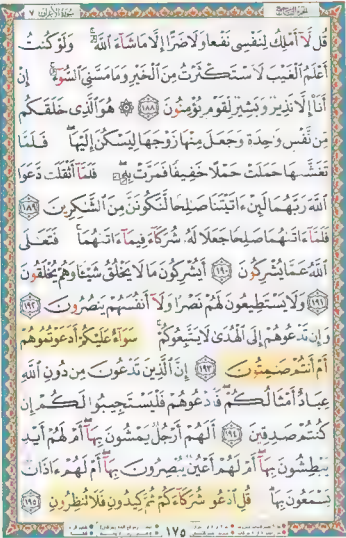 سورة الأعراف ٧
قُل لَّآ أَمْلِكُ لِنَفْسِى نَفْعًا وَلَا ضَرًّا إِلَّا مَا شَآءَ ٱللَّهُ ۚ وَلَوْ كُنتُ
أَعْلَمُ ٱلْغَيْبَ لَٱسْتَكْثَرْتُ مِنَ ٱلْخَيْرِ وَمَا مَسَّنِىَ ٱلسُّوٓءُ ۚ إِنْ
أَنَا۠ إِلَّا نَذِيرٌ وَبَشِيرٌ لِّقَوْمٍ يُؤْمِنُونَ ۝١٨٨ ۞ هُوَ ٱلَّذِى خَلَقَكُم
مِّن نَّفْسٍ وَٰحِدَةٍ وَجَعَلَ مِنْهَا زَوْجَهَا لِيَسْكُنَ إِلَيْهَا ۖ فَلَمَّا
تَغَشَّىٰهَا حَمَلَتْ حَمْلًا خَفِيفًا فَمَرَّتْ بِهِۦ ۖ فَلَمَّآ أَثْقَلَت دَّعَوَا
ٱللَّهَ رَبَّهُمَا لَئِنْ ءَاتَيْتَنَا صَٰلِحًا لَّنَكُونَنَّ مِنَ ٱلشَّٰكِرِينَ ۝١٨٩
فَلَمَّآ ءَاتَىٰهُمَا صَٰلِحًا جَعَلَا لَهُۥ شُرَكَآءَ فِيمَآ ءَاتَىٰهُمَا ۚ فَتَعَٰلَى
ٱللَّهُ عَمَّا يُشْرِكُونَ ۝١٩٠ أَيُشْرِكُونَ مَا لَا يَخْلُقُ شَيْـًٔا وَهُمْ يُخْلَقُونَ
۝١٩١ وَلَا يَسْتَطِيعُونَ لَهُمْ نَصْرًا وَلَآ أَنفُسَهُمْ يَنصُرُونَ ۝١٩٢
وَإِن تَدْعُوهُمْ إِلَى ٱلْهُدَىٰ لَا يَتَّبِعُوكُمْ ۚ سَوَآءٌ عَلَيْكُمْ أَدَعَوْتُمُوهُمْ
أَمْ أَنتُمْ صَٰمِتُونَ ۝١٩٣ إِنَّ ٱلَّذِينَ تَدْعُونَ مِن دُونِ ٱللَّهِ
عِبَادٌ أَمْثَالُكُمْ ۖ فَٱدْعُوهُمْ فَلْيَسْتَجِيبُوا۟ لَكُمْ إِن
كُنتُمْ صَٰدِقِينَ ۝١٩٤ أَلَهُمْ أَرْجُلٌ يَمْشُونَ بِهَآ ۖ أَمْ لَهُمْ أَيْدٍ
يَبْطِشُونَ بِهَآ ۖ أَمْ لَهُمْ أَعْيُنٌ يُبْصِرُونَ بِهَآ ۖ أَمْ لَهُمْ ءَاذَانٌ
يَسْمَعُونَ بِهَا ۗ قُلِ ٱدْعُوا۟ شُرَكَآءَكُمْ ثُمَّ كِيدُونِ فَلَا تُنظِرُونِ ۝١٩٥
١٧٥